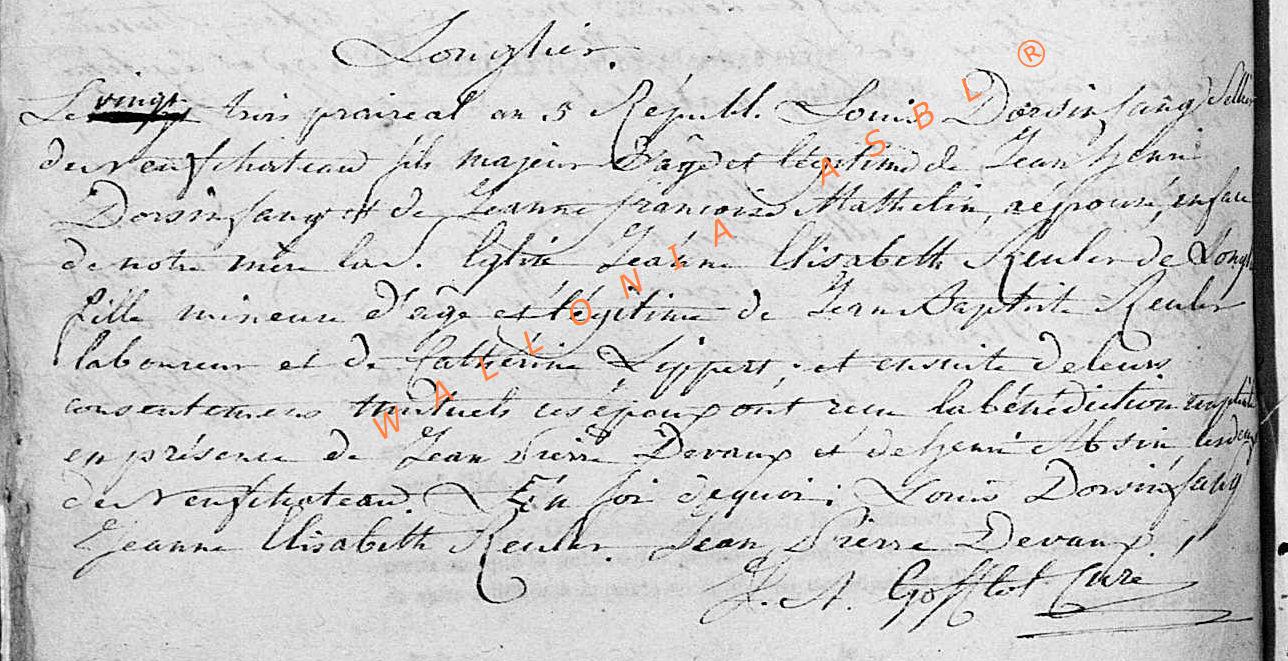 Longlier.
Le vingt trois praireal an 5 Républ. Louis Dorsinfang Sellier
de Neufchateau fils majeur d'âge et légitime de Jean henri
Dorsinfang et de Jeanne françoise Mathelin, a épousé, en face
de notre mère la S. Eglise Jeanne Elisabeth Reuler de Longl
fille mineure d'âge et légitime de Jean Baptiste Reuler
laboureur et de Catherine Lippert, et ensuite de leurs
consentemens mutuels ces époux ont recu la bénédiction nuptiale
en présence de Jean Pierre Devaux et de henri Absin, les deux
de Neufchateau. En foi de quoi; Louis Dorsinfang
Jeanne Elisabeth Reuler. Jean Pierre Devaux.
J. A. Gofflot Curé
WALLONIA ASBL ®